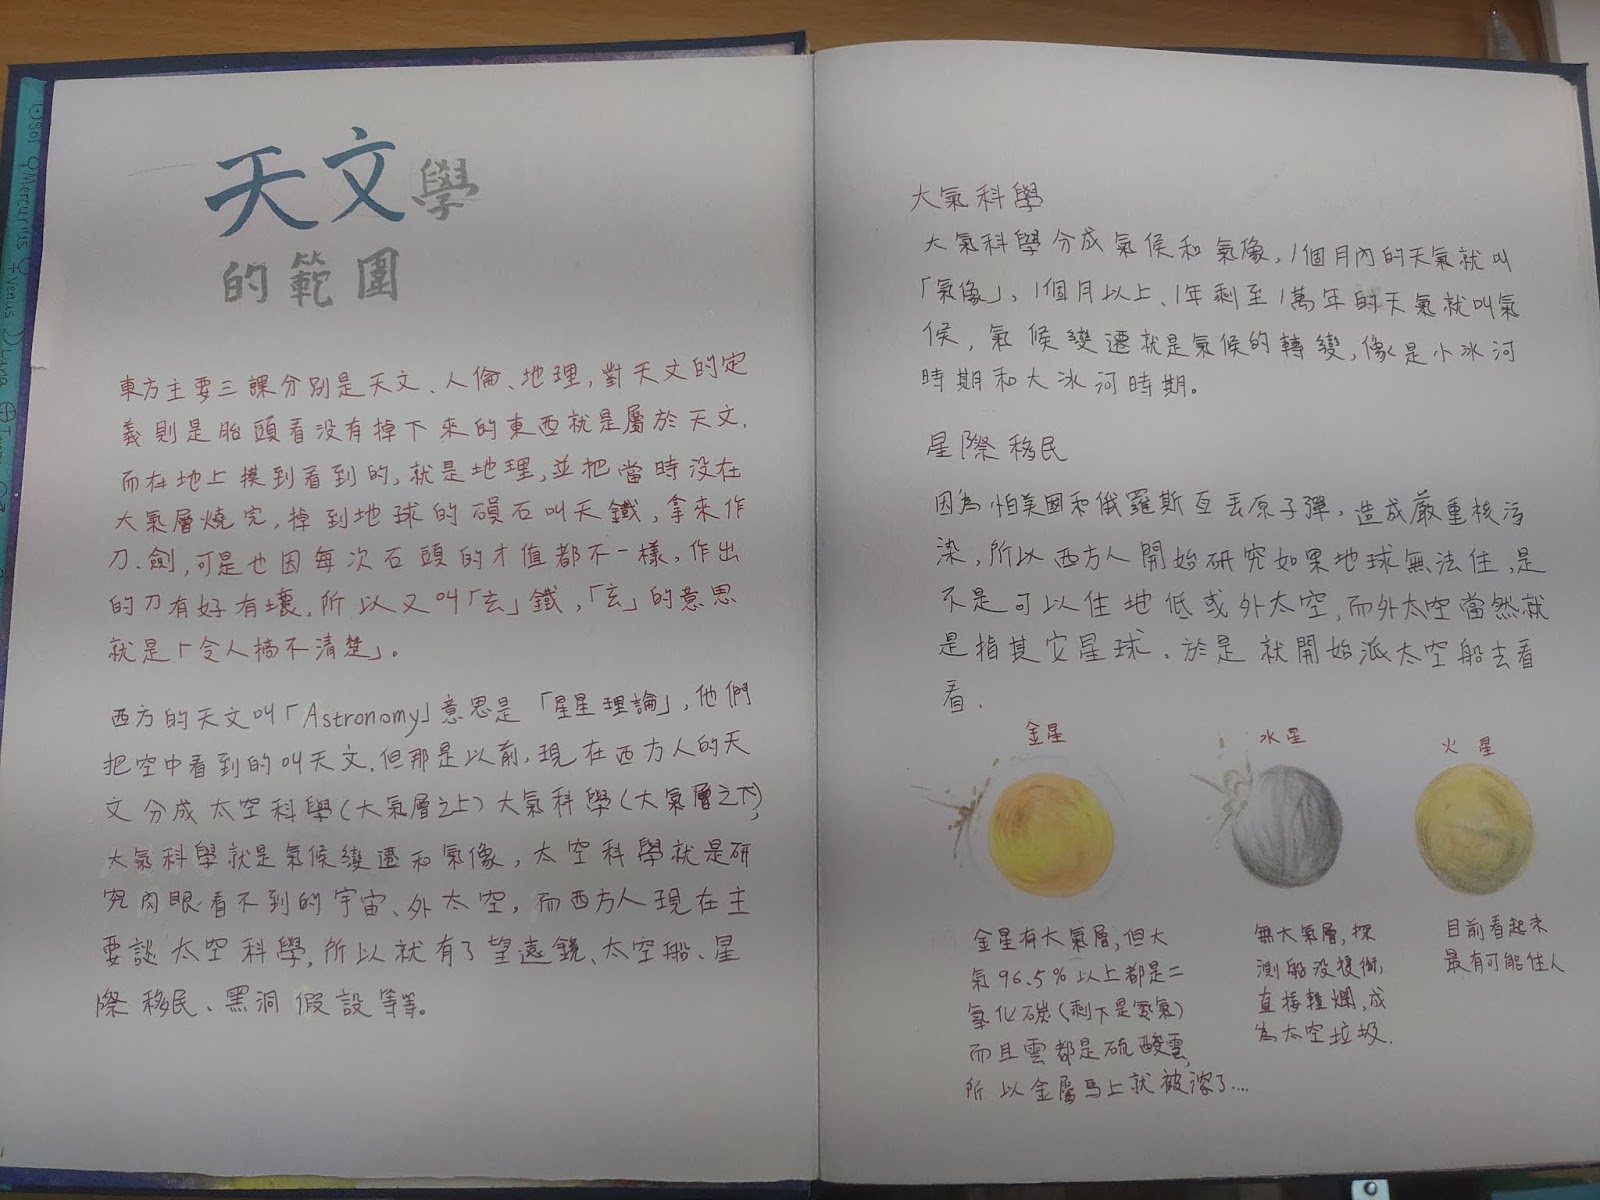 ⊙Sol ☿Mercurius ♀Venus ☽Luna
天文學
的範圍
東方主要三課分別是天文、人倫、地理,對天文的定
義則是胎頭看沒有掉下來的東西就是屬於天文,
而在地上摸到看到的,就是地理,並把當時沒在
大氣層燒完,掉到地球的隕石叫天鐵,拿來作
刀、劍,可是也因每次石頭的才值都不一樣,作出
的刀有好有壞,所以又叫「玄」鐵,「玄」的意思
就是「令人搞不清楚」。
西方的天文叫「Astronomy」意思是「星星理論」,他們
把空中看到的叫天文,但那是以前,現在西方人的天
文分成太空科學(大氣層之上)大氣科學(大氣層之下),
大氣科學就是氣候變遷和氣像,太空科學就是研
究肉眼看不到的宇宙、外太空,而西方人現在主
要談太空科學,所以就有了望遠鏡、太空船、星
際移民、黑洞假設等等。
大氣科學
大氣科學分成氣侯和氣像,1個月內的天氣就叫
「氣像」,1個月以上、1年剩至1萬年的天氣就叫氣
侯,氣候變遷就是氣侯的轉變,像是小冰河
時期和大冰河時期。
星際移民
因為怕美國和俄羅斯互丟原子彈,造成嚴重核污
染,所以西方人開始研究如果地球無法住,是
不是可以住地低或外太空,而外太空當然就
是指其它星球,於是就開始派太空船去看
看.
金星
水星
火星
金星有大氣層,但大
氣96.5%以上都是二
氧化碳(剩下是氮氣)
而且雲都是硫酸雲,
所以金屬馬上就被溶了....
無大氣層,探
測船沒緩衝,
直接撞爛,成
為太空垃圾.
目前看起來
最有可能住人